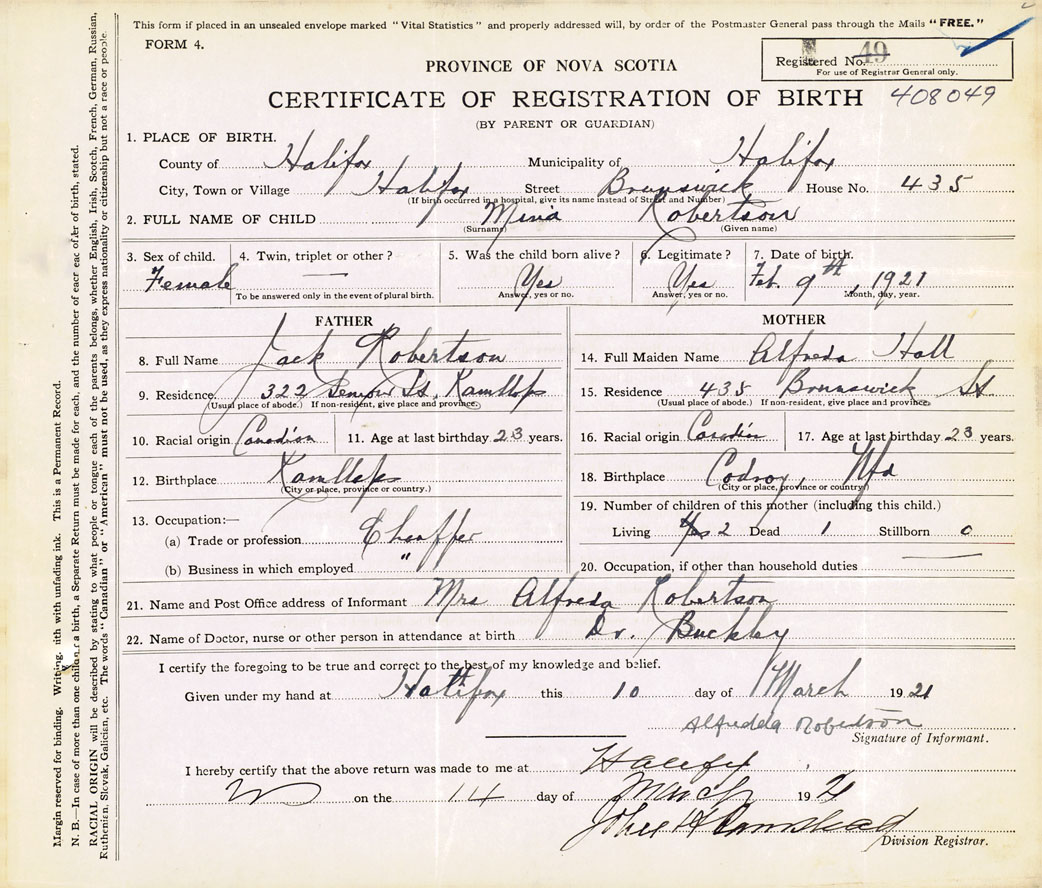 This form if placed in an unsealed envelope marked "Vital Statistics" and properly addressed will, by order of the Postmaster General pass through the Mails "FREE."
FORM 4.
Registered No. 49
For use of Registrar General only.
PROVINCE OF NOVA SCOTIA
CERTIFICATE OF REGISTRATION OF BIRTH 408049
(BY PARENT OR GUARDIAN)
1. PLACE OF BIRTH.
County of Halifax Municipality of Halifax
City, Town or Village Halifax Street Brunswick House No. 435
(If birth occurred in a hospital, give its name instead of Street and Number)
2. FULL NAME OF CHILD Mina Robertson
(Surname) (Given name)
3. Sex of child. 4. Twin, triplet or other? 5. Was the child born alive? 6. Legitimate? 7. Date of birth.
Female — Yes Yes Feb. 9th, 1921
To be answered only in the event of plural birth. Answer, yes or no. Answer, yes or no. Month, day, year.
FATHER
8. Full Name Jack Robertson
9. Residence 322 St. Kamllops
(Usual place of abode.) If non-resident, give place and province.
10. Racial origin Canadian 11. Age at last birthday 23 years.
12. Birthplace Kamllops
(City or place, province or country.)
13. Occupation:—
(a) Trade or profession Chauffer
(b) Business in which employed "
MOTHER
14. Full Maiden Name Alfreda Hall
15. Residence 435 Brunswick St
(Usual place of abode.) If non-resident, give place and province.
16. Racial origin Canadian 17. Age at last birthday 23 years.
18. Birthplace Codroy, Nfd
(City or place, province or country)
19. Number of children of this mother (including this child.)
Living 2 Dead 1 Stillborn 0
20. Occupation, if other than household duties —
21. Name and Post Office address of Informant Mrs Alfreda Robertson
22. Name of Doctor, nurse or other person in attendance at birth Dr. Buckley
I certify the foregoing to be true and correct to the best of my knowledge and belief.
Given under my hand at Halifax this 10 day of March 1921
Alfredda Robertson
Signature of Informant.
I hereby certify that the above return was made to me at Halifax
on the 14 day of March 1921
John
Division Registrar.
Margin reserved for binding. Writing with unfading ink. This is a Permanent Record.
N. B.—In case of more one child at a birth, a Separate Return must be made for each, and the number of each of birth, stated.
RACIAL ORIGIN will be described by stating to what people or tongue each of the parents belongs, whether English, Irish, Scotch, French, German, Russian,
Ruthenian, Slovak, Galician, etc. The words "Canadian" or "American" must not be used, as they express nationality or citizenship but not a race or people.